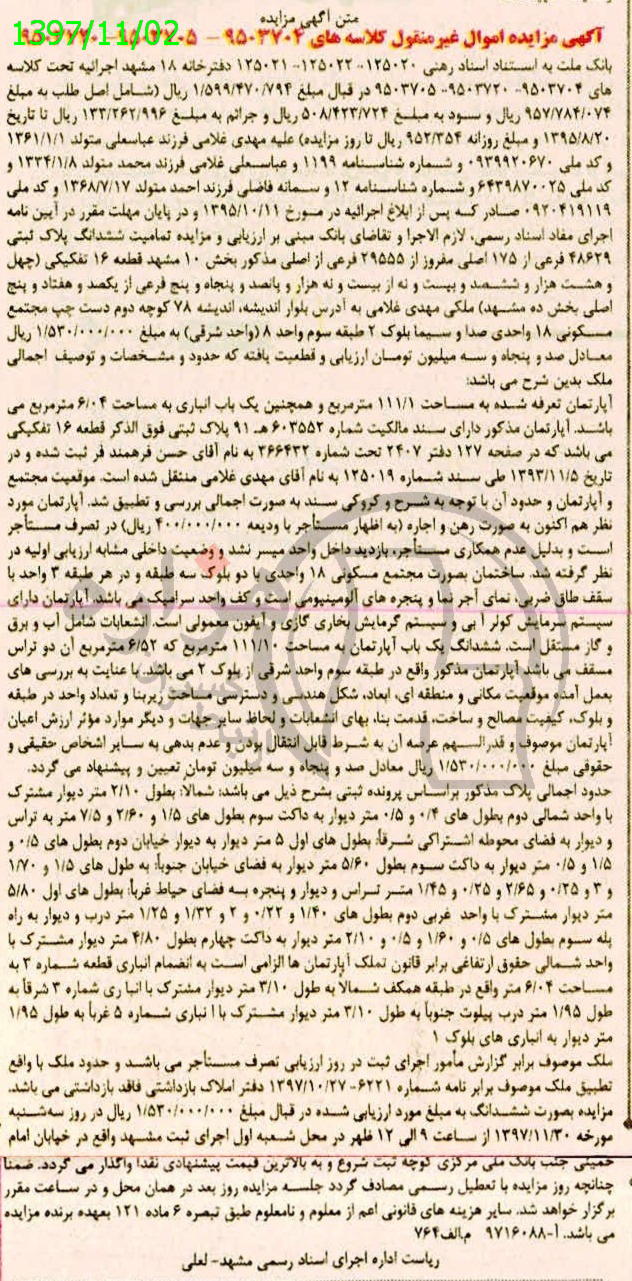 1397/11/02
متن آگهی مزایده
آگهی مزایده اموال غیرمنقول کلاسه های ۹۵۰۳۷۰۴ – ۹۵۰۳۷۰۵ – ۹۵۰۳۷۲۰
بانک ملت به استناد اسناد رهنی ۱۲۵۰۲۰- ۱۲۵۰۲۲- ۱۲۵۰۲۱ دفترخانه ۱۸ مشهد اجرائیه تحت کلاسه
های ۹۵۰۳۷۰۴- ۹۵۰۳۷۲۰- ۹۵۰۳۷۰۵ در قبال مبلغ ۱/۵۹۹/۴۷۰/۷۹۴ ریال (شامل اصل طلب به مبلغ
۹۵۷/۷۸۴/۰۷۴ ریال و سود به مبلغ ۵۰۸/۴۲۳/۷۲۴ ریال و جرائم به مبلغ ۱۳۳/۲۶۲/۹۹۶ ریال تا تاریخ
۱۳۹۵/۸/۲۰ و مبلغ روزانه ۹۵۲/۳۵۴ ریال تا روز مزایده) علیه مهدی غلامی فرزند عباسعلی متولد ۱۳۶۱/۱/۱
و کد ملی ۰۹۳۹۹۲۰۶۷۰ و شماره شناسنامه ۱۱۹۹ و عباسعلی غلامی فرزند محمد متولد ۱۳۳۴/۱/۸ و
کد ملی ۶۴۳۹۸۷۰۰۲۵ و شماره شناسنامه ۱۲ و سمانه فاضلی فرزند احمد متولد ۱۳۶۸/۷/۱۷ و کد ملی
۰۹۲۰۴۱۹۱۱۹ صادر که پس از ابلاغ اجرائیه در مورخ ۱۳۹۵/۱۰/۱۱ و در پایان مهلت مقرر در آیین نامه
اجرای مفاد اسناد رسمی، لازم الاجرا و تقاضای بانک مبنی بر ارزیابی و مزایده تمامیت ششدانگ پلاک ثبتی
۴۸۶۲۹ فرعی از ۱۷۵ اصلی مفروز از ۲۹۵۵۵ فرعی از اصلی مذکور بخش ۱۰ مشهد قطعه ۱۶ تفکیکی (چهل
و هشت هزار و ششصد و بیست و نه از بیست و نه هزار و پانصد و پنجاه و پنج فرعی از یکصد و هفتاد و پنج
اصلی بخش ده مشهد) ملکی مهدی غلامی به آدرس بلوار اندیشه، اندیشه ۷۸ کوچه دوم دست چپ مجتمع
مسکونی ۱۸ واحدی صدا و سیما بلوک ۲ طبقه سوم واحد ۸ (واحد شرقی) به مبلغ ۱/۵۳۰/۰۰۰/۰۰۰ ریال
معادل صد و پنجاه و سه میلیون تومان ارزیابی و قطعیت یافته که حدود و مشخصات و توصیف اجمالی
ملک بدین شرح می باشد:
آپارتمان تعرفه شده به مساحت ۱۱۱/۱ مترمربع و همچنین یک باب انباری به مساحت ۶/۰۴ مترمربع می
باشد. آپارتمان مذکور دارای سند مالکیت شماره ۶۰۳۵۵۲ هـ ۹۱ پلاک ثبتی فوق الذکر قطعه ۱۶ تفکیکی
می باشد که در صفحه ۱۲۷ دفتر ۲۴۰۷ تحت شماره ۳۶۶۴۳۲ به نام آقای حسن فرهمند فر ثبت شده و در
تاریخ ۱۳۹۳/۱۱/۵ طی سند شماره ۱۲۵۰۱۹ به نام آقای مهدی غلامی منتقل شده است. موقعیت مجتمع
و آپارتمان و حدود آن با توجه به شرح و کروکی سند به صورت اجمالی بررسی و تطبیق شد. آپارتمان مورد
نظر هم اکنون به صورت رهن و اجاره (به اظهار مستأجر با ودیعه ۴۰۰/۰۰۰/۰۰۰ ریال) در تصرف مستأجر
است و بدلیل عدم همکاری مستأجر، بازدید داخل واحد میسر نشد و وضعیت داخلی مشابه ارزیابی اولیه در
نظر گرفته شد. ساختمان بصورت مجتمع مسکونی ۱۸ واحدی با دو بلوک سه طبقه و در هر طبقه ۳ واحد با
سقف طاق ضربی، نمای آجر نما و پنجره های آلومینیومی است و کف واحد سرامیک می باشد. آپارتمان دارای
سیستم سرمایش کولر آ بی و سیستم گرمایش بخاری گازی و آیفون معمولی است. انشعابات شامل آب و برق
و گاز مستقل است. ششدانگ یک باب آپارتمان به مساحت ۱۱۱/۱۰ مترمربع که ۶/۵۲ مترمربع آن دو تراس
مسقف می باشد آپارتمان مذکور واقع در طبقه سوم واحد شرقی از بلوک ۲ می باشد. با عنایت به بررسی های
بعمل آمده موقعیت مکانی و منطقه ای، ابعاد، شکل هندسی و دسترسی مساحت زیربنا و تعداد واحد در طبقه
و بلوک، کیفیت مصالح و ساخت، قدمت بنا، بهای انشعابات و لحاظ سایر جهات و دیگر موارد مؤثر ارزش اعیان
آپارتمان موصوف و قدرالسهم عرصه آن به شرط قابل انتقال بودن و عدم بدهی به سایر اشخاص حقیقی و
حقوقی مبلغ ۱/۵۳۰/۰۰۰/۰۰۰ ریال معادل صد و پنجاه و سه میلیون تومان تعیین و پیشنهاد می گردد.
حدود اجمالی پلاک مذکور براساس پرونده ثبتی بشرح ذیل می باشد: شمالا: بطول ۲/۱۰ متر دیوار مشترک
با واحد شمالی دوم بطول های ۰/۴ و ۰/۵ متر دیوار به داکت سوم بطول های ۱/۵ و ۲/۶۰ و ۷/۵ متر به تراس
و دیوار به فضای محوطه اشتراکی شرقاً: بطول های اول ۵ متر دیوار به دیوار خیابان دوم بطول های ۰/۵ و
۱/۵ و ۰/۵ متر دیوار به داکت سوم بطول ۵/۶۰ متر دیوار به فضای خیابان جنوباً: به طول های ۱/۵ و ۱/۷۰
و ۳ و ۰/۲۵ و ۲/۶۵ و ۰/۲۵ و ۱/۴۵ متر تراس و دیوار و پنجره به فضای حیاط غرباً: بطول های اول ۵/۸۰
متر دیوار مشترک با واحد غربی دوم بطول های ۱/۴۰ و ۰/۲۲ و ۲ و ۱/۳۲ و ۱/۲۵ متر درب و دیوار به راه
پله سوم بطول های ۰/۵ و ۱/۶۰ و ۰/۵ و ۲/۱۰ متر دیوار به داکت چهارم بطول ۴/۸۰ متر دیوار مشترک با
واحد شمالی حقوق ارتفاعی برابر قانون تملک آپارتمان ها الزامی است به انضمام انباری قطعه شماره ۳ به
مساحت ۶/۰۴ متر واقع در طبقه همکف شمالاً به طول ۳/۱۰ متر دیوار مشترک با انبا ری شماره ۳ شرقاً به
طول ۱/۹۵ متر درب پیلوت جنوباً به طول ۳/۱۰ متر دیوار مشترک با ا نباری شماره ۵ غرباً به طول ۱/۹۵
متر دیوار به انباری های بلوک ۱
ملک موصوف برابر گزارش مأمور اجرای ثبت در روز ارزیابی تصرف مستأجر می باشد و حدود ملک با واقع
تطبیق ملک موصوف برابر نامه شماره ۶۲۲۱- ۱۳۹۷/۱۰/۲۷ دفتر املاک بازداشتی فاقد بازداشتی می باشد.
مزایده بصورت ششدانگ به مبلغ مورد ارزیابی شده در قبال مبلغ ۱/۵۳۰/۰۰۰/۰۰۰ ریال در روز سه‌شنبه
مورخه ۱۳۹۷/۱۱/۳۰ از ساعت ۹ الی ۱۲ ظهر در محل شعبه اول اجرای ثبت مشهد واقع در خیابان امام
خمینی جنب بانک ملی مرکزی کوچه ثبت شروع و به بالاترین قیمت پیشنهادی نقدا واگذار می گردد. ضمنا
چنانچه روز مزایده با تعطیل رسمی مصادف گردد جلسه مزایده روز بعد در همان محل و در ساعت مقرر
برگزار خواهد شد. سایر هزینه های قانونی اعم از معلوم و نامعلوم طبق تبصره ۶ ماده ۱۲۱ بعهده برنده مزایده
می باشد. آ-۹۷۱۶۰۸۸ م.الف۷۶۴
ریاست اداره اجرای اسناد رسمی مشهد- لعلی